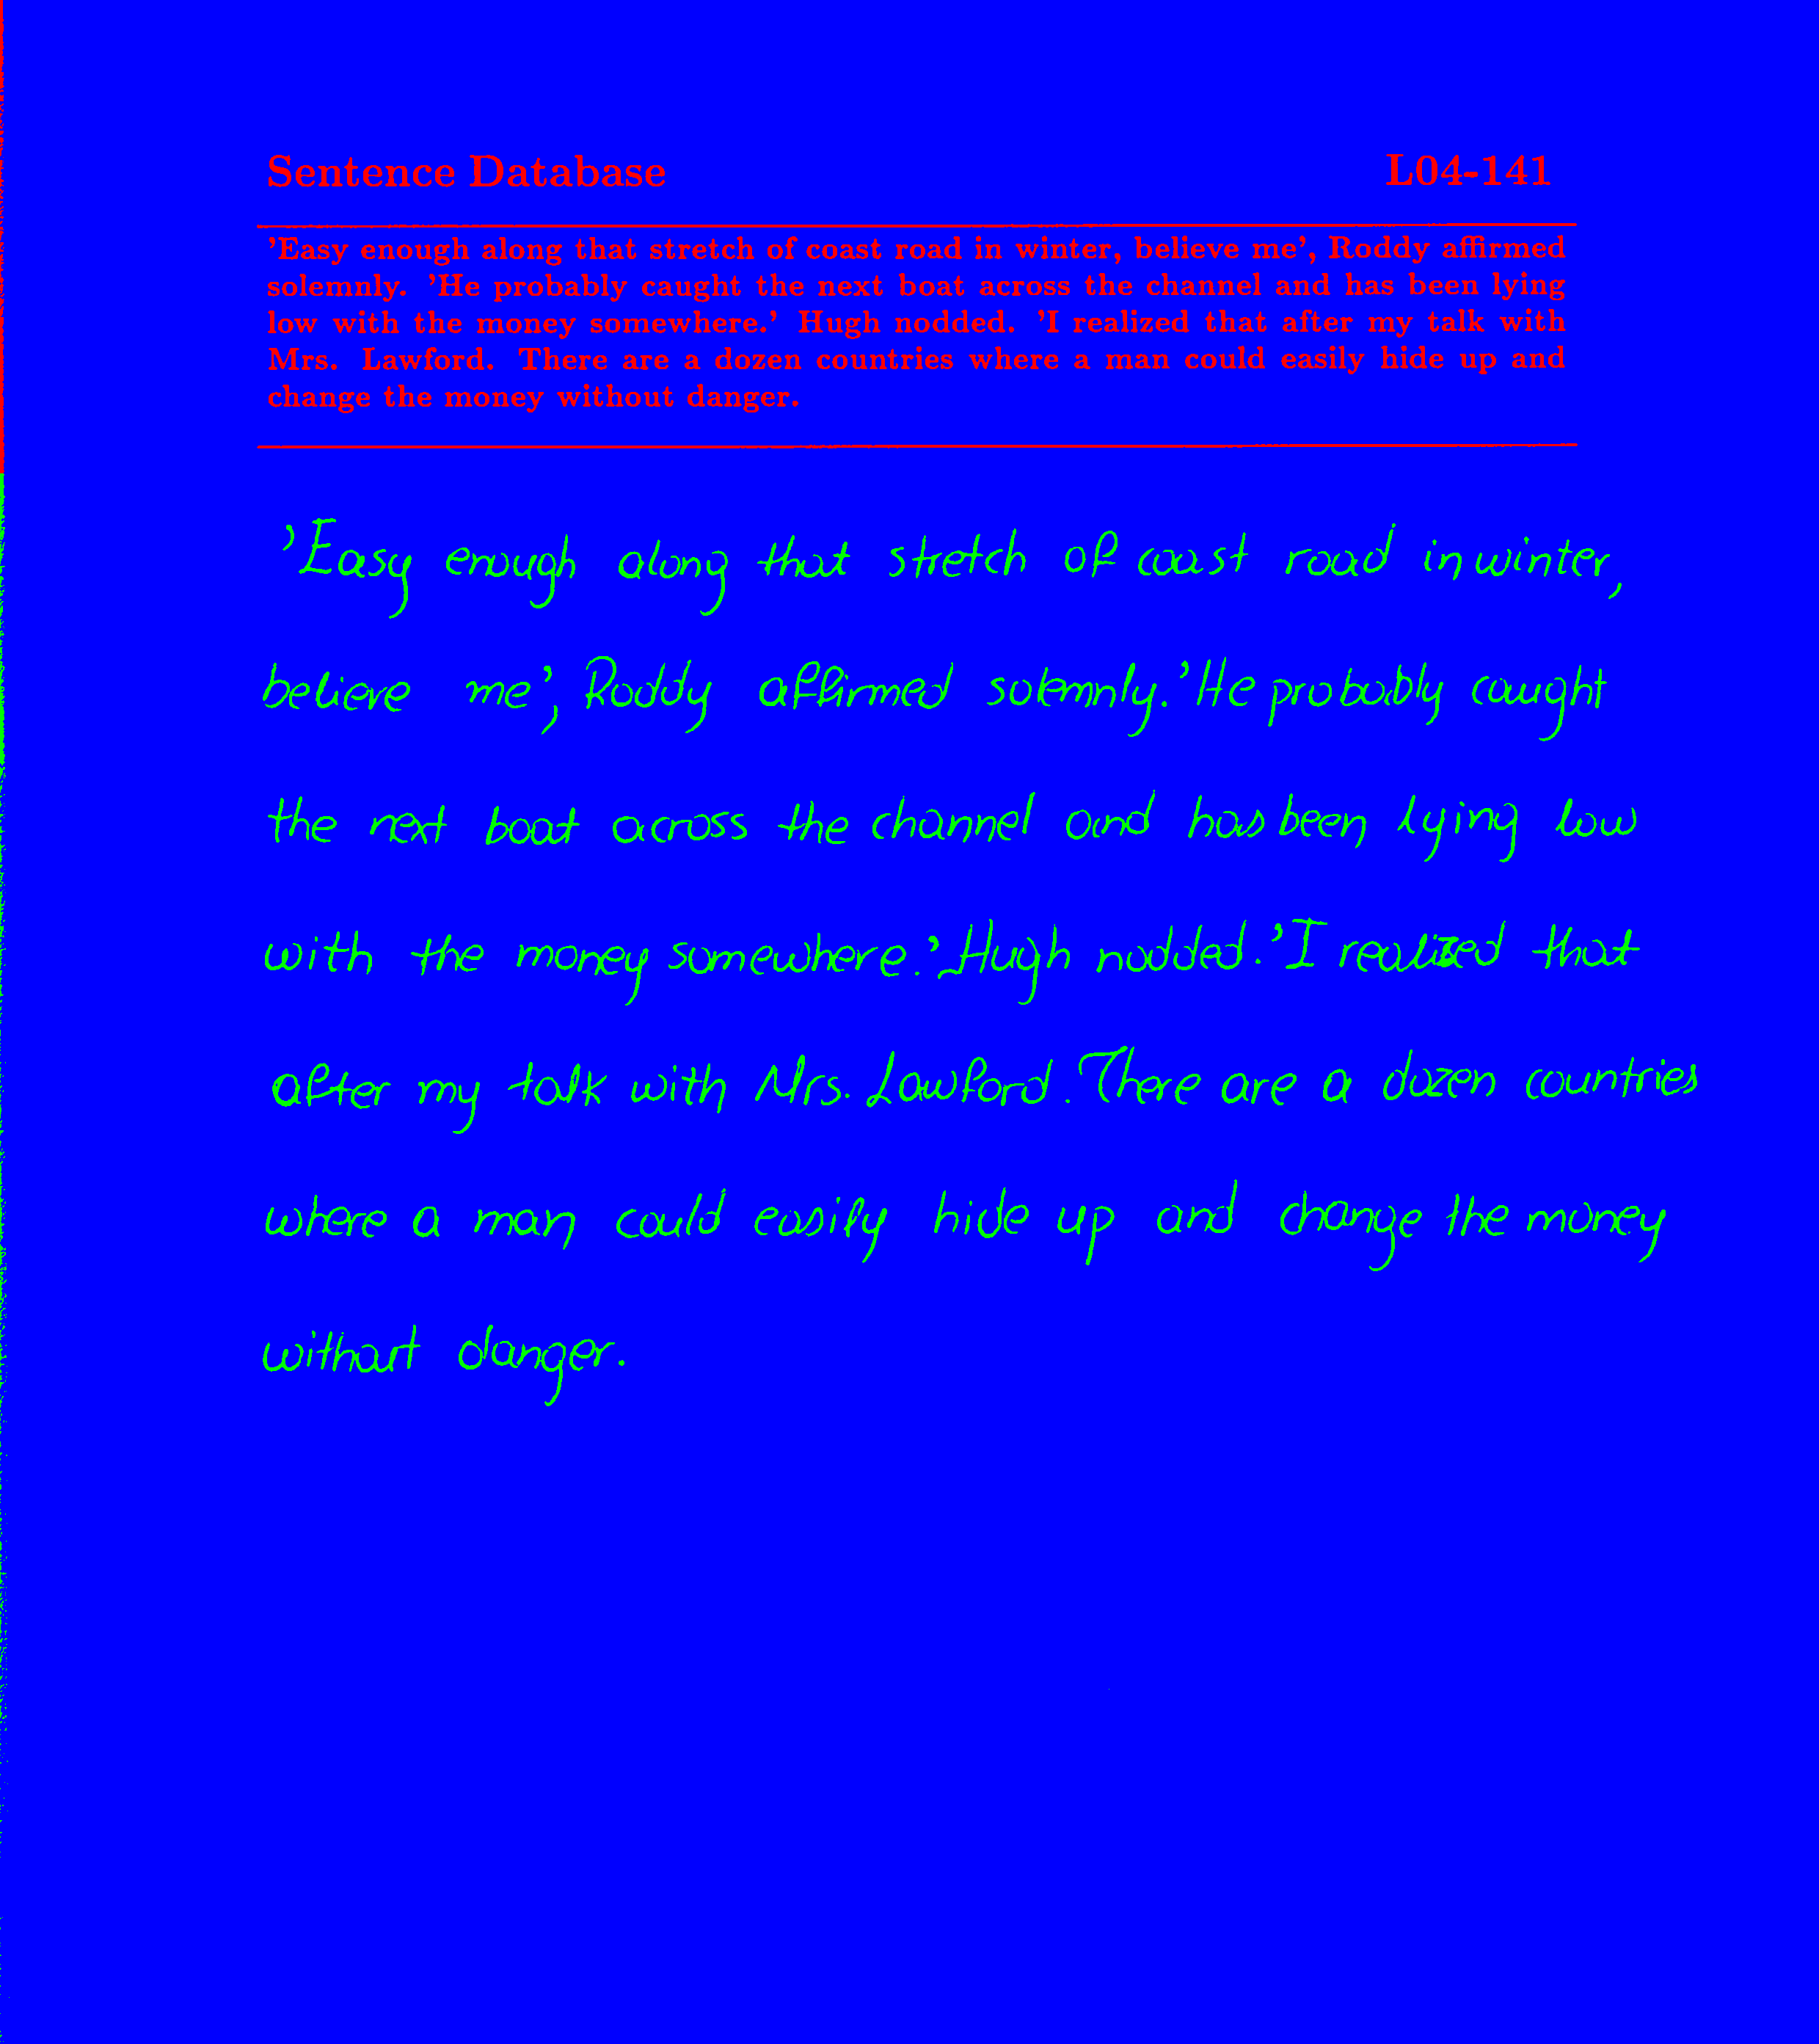 Sentence Database L04-141
'Easy enough along that stretch of coast road in winter, believe me', Roddy affirmed
solemnly. 'He probably caught the next boat across the channel and has been lying
low with the money somewhere.' Hugh nodded. 'I realized that after my talk with
Mrs. Lawford. There are a dozen countries where a man could easily hide up and
change the money without danger.
'Easy enough along that stretch of coast road in winter,
believe me', Roddy affirmed solemnly. 'He probably caught
the next boat across the channel and has been lying low
with the money somewhere.' Hugh nodded. 'I realized that
after my talk with Mrs. Lawford. There are a dozen countries
where a man could easily hide up and change the money
without danger.